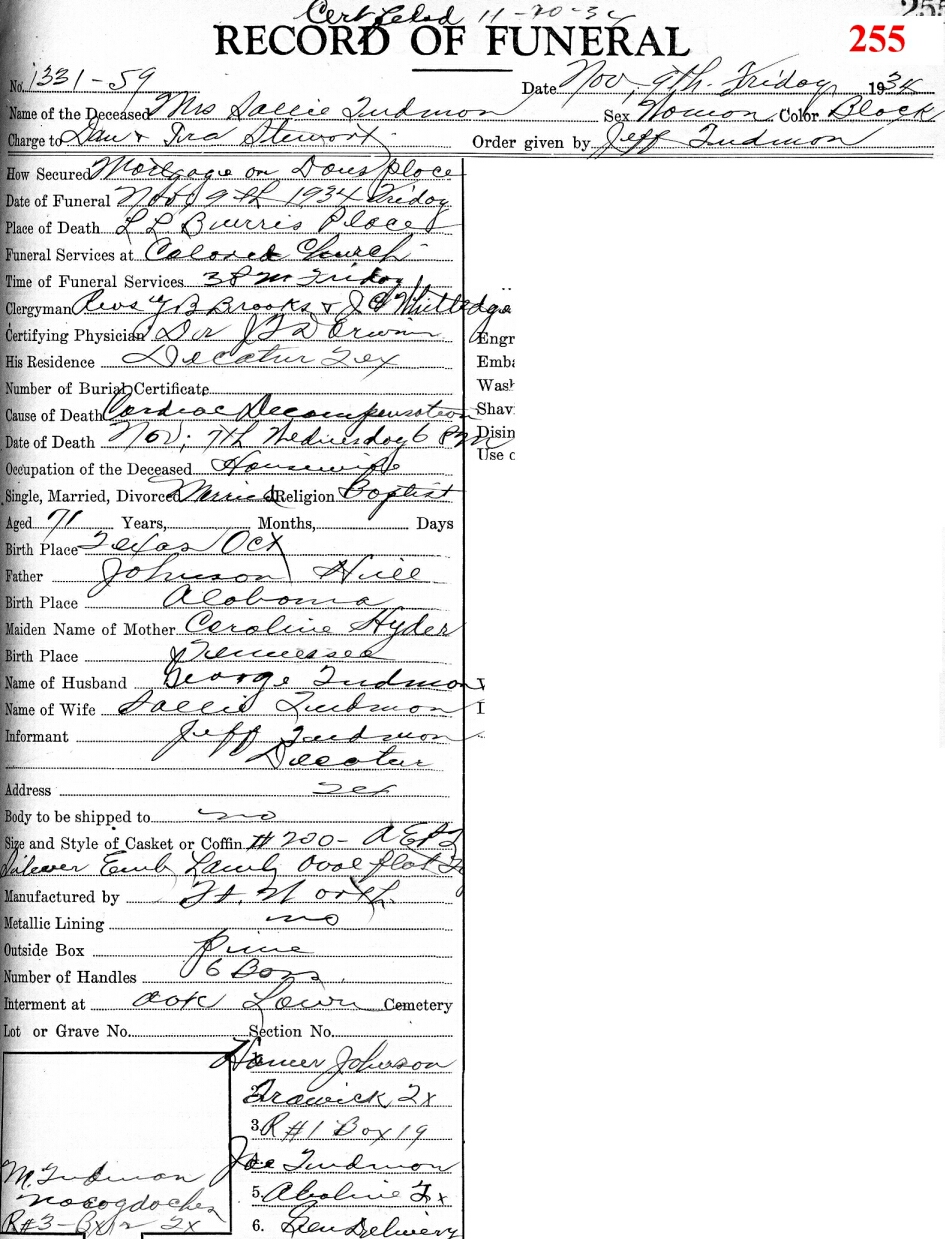 Cert filed 11-20-34
255
RECORD OF FUNERAL
255
No. 1331-59 Date Nov, 9th. Friday 1934
Name of the Deceased Mrs Sallie Tudmon Sex Womon Color Black
Charge to Dan & Ira Stewort Order given by Jeff Tudmon
How Secured Mortgage on Dons place
Date of Funeral Nov, 9th 1934 Friday
Place of Death L L Burris Place
Funeral Services at Colored Church
Time of Funeral Services 3 P m Friday
Clergyman Revs Brooks &
Certifying Physician Dr Erwin
Engr
His Residence Decatur Tex
Emba
Number of Burial Certificate
Wash
Cause of Death Cardiac Decompensation
Shavi
Date of Death Nov, 7th Wednesday 6 P m
Disin
Occupation of the Deceased Housewife
Use o
Single, Married, Divorced Married Religion Baptist
Aged 71 Years, Months, Days
Birth Place Texas Oct
Father Johnson Hill
Birth Place Alaboma
Maiden Name of Mother Caroline Hyder
Birth Place Tennessee
Name of Husband George Tudmon
Name of Wife Sallie Tudmon
Informant Jeff Tudmon
Decatur
Address Tex
Body to be shipped to no
Size and Style of Casket or Coffin #200-
Emb Lamb Oval flat
Manufactured by Ft. Worth
Metallic Lining no
Outside Box Pine
Number of Handles 6 Bars
Interment at oak Lawn Cemetery
Lot or Grave No. Section No.
Homer Johnson
2. Trawick, Tx
3. R#1 Box 19
Joe Tudmon
5. Abaline Tx
6. Gen Delivery
M. Tudmon
Nacogdoches
R#3-Bx Tx